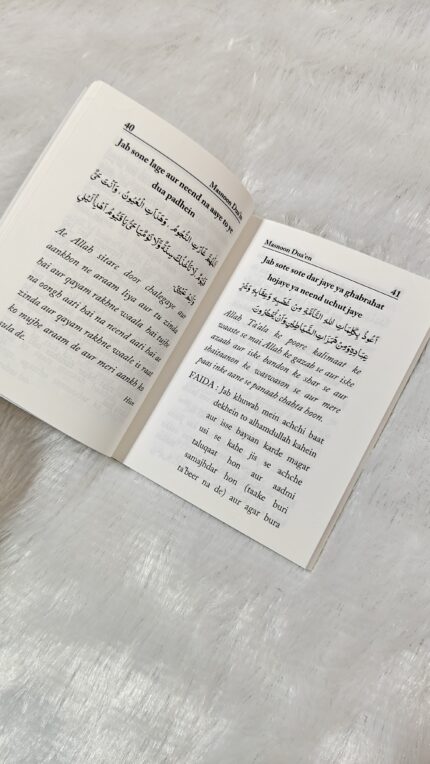 40
Masnoon Dua'en
Jab sone lage aur neend na aaye to ye
dua padhein
اَللّٰهُمَّ غَارَتِ النُّجُوْمُ وَهَدَأَتِ الْعُيُوْنُ وَاَنْتَ حَيٌّ
قَيُّوْمٌ لَا تَأْخُذُكَ سِنَةٌ وَّلَا نَوْمٌ يَا حَيُّ يَا قَيُّوْمُ اَهْدِئْ لَيْلِيْ
Ae Allah sitare door chalegaye aur
aankhon ne araam liya aur tu zinda
hai aur qayam rakhne waala hai tujhe
na oongo aati hai na neend aati hai ae
zinda aur qayam rakhne waale is raat
ko mujhe araam de aur meri aankh ko
sula de.
Masnoon Dua'en
41
Jab sote sote dar jaye ya ghabrahat
hojaye ya neend uchut jaye
اَعُوْذُ بِكَلِمَاتِ اللهِ التَّامَّةِ مِنْ غَضَبِهٖ وَعِقَابِهٖ وَشَرِّ
عِبَادِهٖ وَمِنْ هَمَزَاتِ الشَّيَاطِيْنِ وَاَنْ يَّحْضُرُوْنَ
Allah Ta'ala ke poore kalimaat ke
waaste se mai Allah ke gazab se aur iske
azaab aur iske bandon ke shar se aur
shaitaanon ke waswason se aur mere
paas inke aane se panaah chahta hoon.
FAIDA : Jab khuwab mein achchi baat
dekhein to alhamdullah kahein
aur isse bayaan karde magar
usi se kahe jis se achche
taluqaat hon aur aadmi
samajhdar hon (taake buri
ta'beer na de) aur agar bura